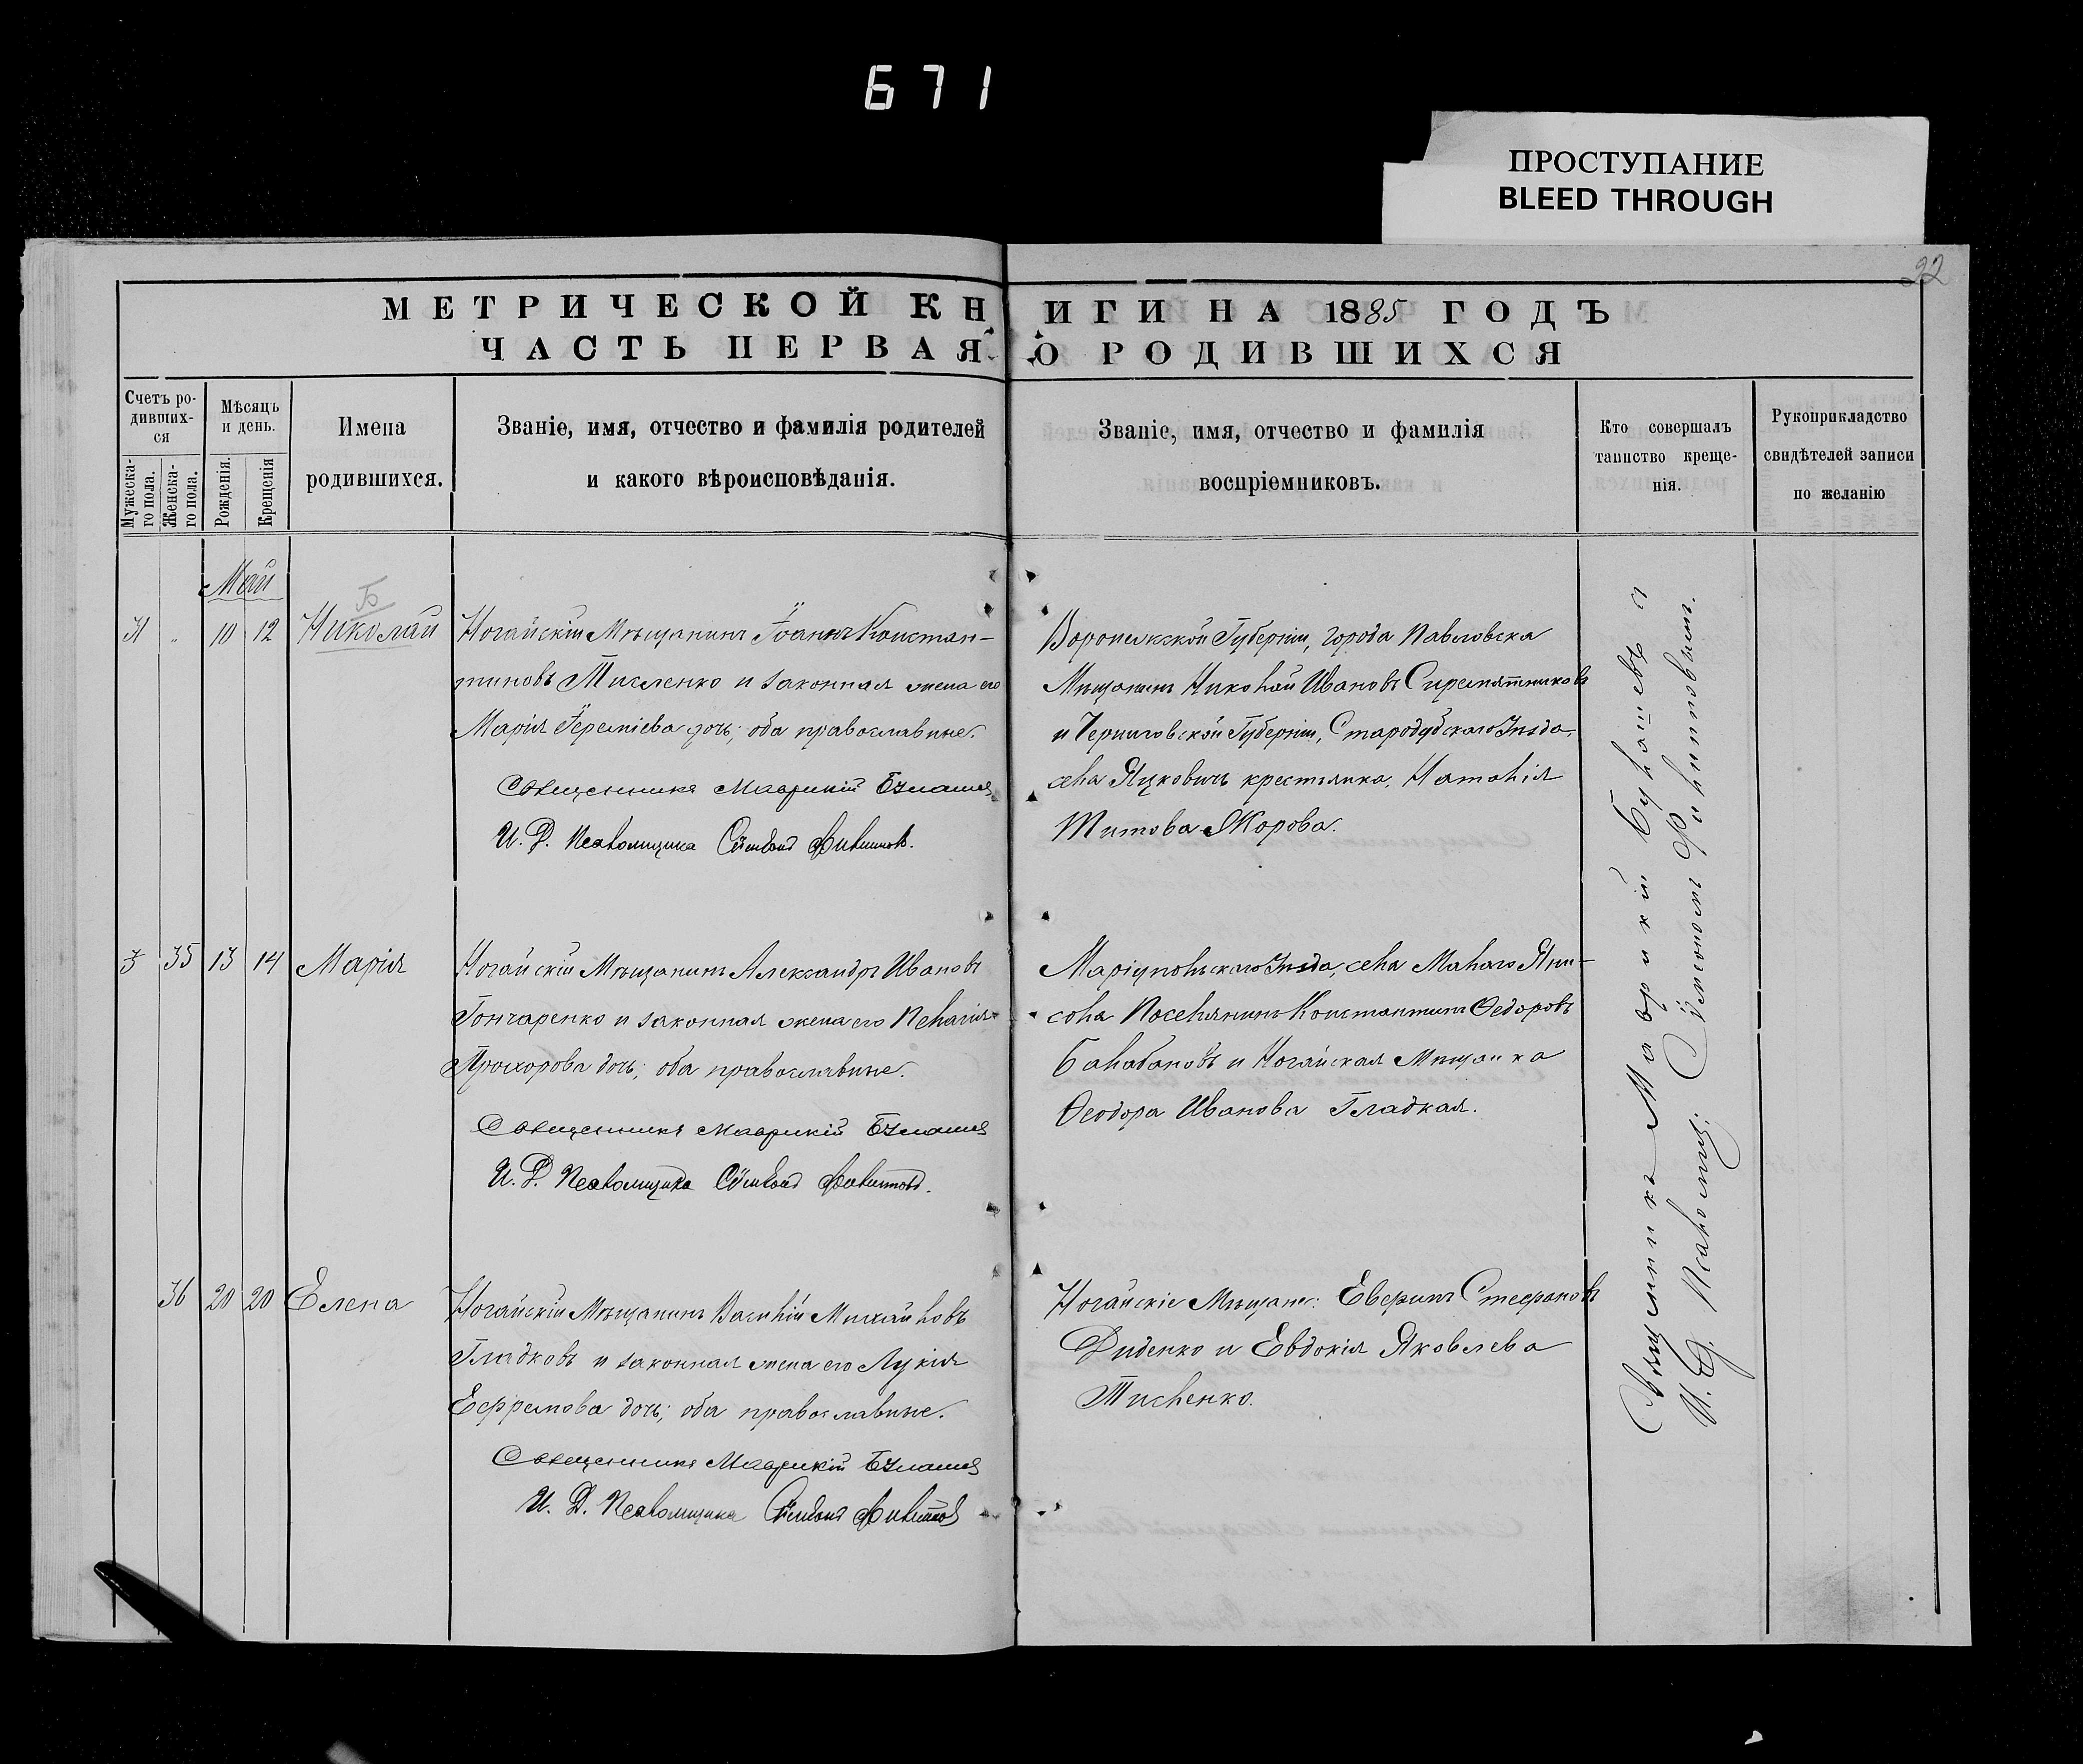 671
ПРОСТУПАНИЕ
BLEED THROUGH
32
МЕТРИЧЕСКОЙ КНИГИ НА 1885 ГОДЪ
ЧАСТЬ ПЕРВАЯ О РОДИВШИХСЯ
Счетъ ро-
дивших-
ся
Мужеска-
го пола.
Женска-
го пола.
Мѣсяцъ
и день.
Рожденія.
Крещенія
Имена
родившихся.
Званіе, имя, отчество и фамилія родителей
и какого вѣроисповѣданія.
Званіе, имя, отчество и фамилія
воспріемниковъ.
Кто совершалъ
таинство креще-
нія.
Рукоприкладство
свидѣтелей записи
по желанію
Май
Б
31 " 10 12 Николай
Ногайскій Мѣщанинъ Іоаннъ Констан-
тиновъ Тисленко и законная жена его
Марія Іереміева дочь; оба православные.
Священникъ Маврикій
И. Д. Псаломщика Сѵмеонъ Филипповъ.
Воронежской Губерніи, города Павловска
Мѣщанинъ Николай Ивановъ Сыромятниковъ
и Черниговской Губерніи, Стародубскаго Уѣзда,
села Яцковичъ крестьянка, Наталія
Титова
35 13 14 Марія
Ногайскій Мѣщанинъ Александръ Ивановъ
Гончаренко и законная жена его Пелагія
Прохорова дочь; оба православные.
Священникъ Маврикій
И. Д. Псаломщика Сѵмеонъ Филипповъ.
Маріупольскаго Уѣзда, села Малаго Яни-
соля Поселянинъ Константинъ Ѳедоровъ
Балабановъ и Ногайская Мѣщанка
Ѳеодора Иванова Гладкая.
36 20 20 Елена
Ногайскій Мѣщанинъ Василій Михайловъ
Гладковъ и законная жена его Лукія
Ефремова дочь; оба православные.
Священникъ Маврикій
И. Д. Псаломщика Сѵмеонъ Филипповъ
Ногайскіе Мѣщане: Стефановъ
Диденко и Евдокія Яковлева
Тисленко.
Священникъ Маврикій
И. Д. Псаломщ. Сѵмеономъ Филипповымъ.